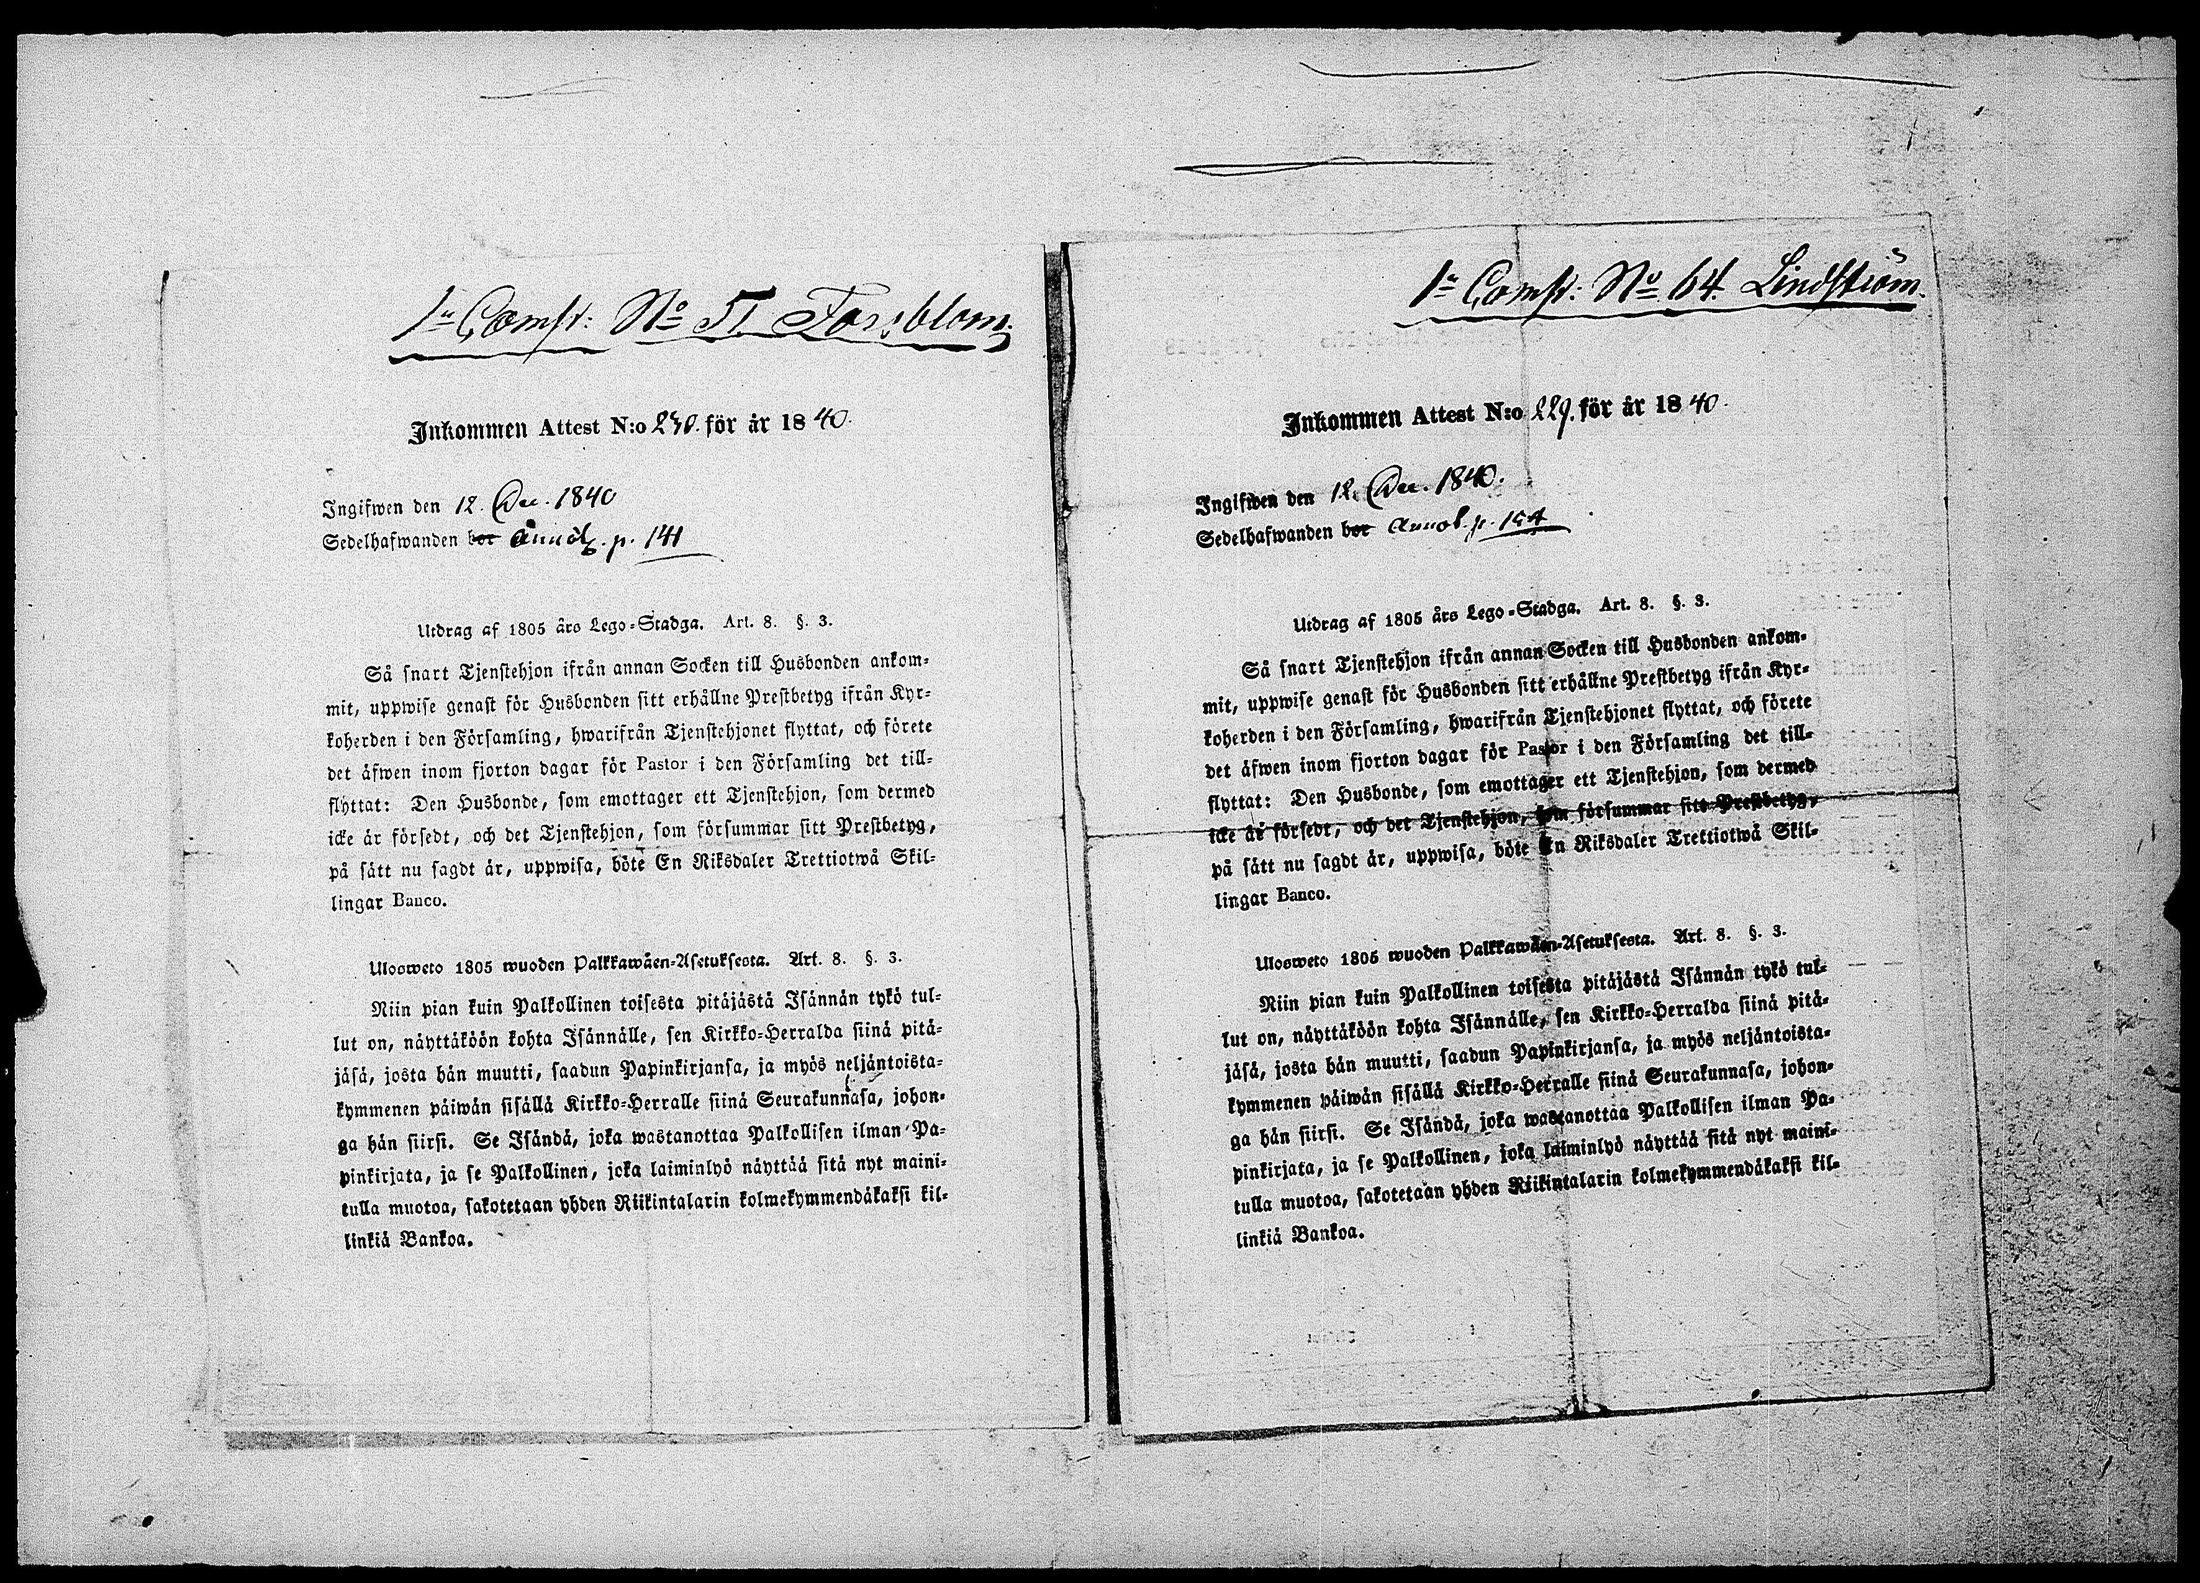 1:a Comp: No 51 Forsblom.
Inkommen Attest N:o 230. för år 1840.
Ingifwen den 12. Dec. 1840
Sedelhafwanden bor Annot. p. 141
Utdrag af 1805 års Lego-Stadga. Art. 8. §. 3.
Så snart Tjenstehjon ifrån annan Socken till Husbonden ankom-
mit, uppwise genast för Husbonden sitt erhållne Prestbetyg ifrån Kyr-
koherden i den Församling, hwarifrån Tjenstehjonet flyttat, och förete
det äfwen inom fjorton dagar för Pastor i den Församling det till-
flyttat: Den Husbonde, som emottager ett Tjenstehjon, som dermed
icke är försedt, och det Tjenstehjon, som försummar sitt Prestbetyg,
på sätt nu sagdt är, uppwisa, böte En Riksdaler Trettiotwå Skil-
lingar Banco.
Ulosweto 1805 wuoden Palkkawäen-Asetuksesta. Art. 8. §. 3.
Niin pian kuin Palkollinen toisesta pitäjästä Isännän tykö tul-
lut on, näyttäköön kohta Isännälle, sen Kirkko-Herralda siinä pitä-
jäsä, josta hän muutti, saadun Papinkirjansa, ja myös neljäntoista-
kymmenen päiwän sisällä Kirkko-Herralle siinä Seurakunnasa, johon-
ga hän siirsi. Se Isändä, joka wastanottaa Palkollisen ilman Pa-
pinkirjata, ja se Palkollinen, joka laiminlyö näyttää sitä nyt maini-
tulla muotoa, sakotetaan yhden Riikintalarin kolmekymmendäkaksi kil-
linkiä Bankoa.
1:a Comp: No 64. Lindström.
Inkommen Attest N:o 229. för år 1840.
Ingifwen den 12. Dec. 1840.
Sedelhafwanden bor Annot. p. 154
Utdrag af 1805 års Lego-Stadga. Art. 8. §. 3.
Så snart Tjenstehjon ifrån annan Socken till Husbonden ankom-
mit, uppwise genast för Husbonden sitt erhållne Prestbetyg ifrån Kyr-
koherden i den Församling, hwarifrån Tjenstehjonet flyttat, och förete
det äfwen inom fjorton dagar för Pastor i den Församling det till-
flyttat: Den Husbonde, som emottager ett Tjenstehjon, som dermed
icke är försedt, och det Tjenstehjon, som försummar sitt Prestbetyg,
på sätt nu sagdt är, uppwisa, böte En Riksdaler Trettiotwå Skil-
lingar Banco.
Ulosweto 1805 wuoden Palkkawäen-Asetuksesta. Art. 8. §. 3.
Niin pian kuin Palkollinen toisesta pitäjästä Isännän tykö tul-
lut on, näyttäköön kohta Isännälle, sen Kirkko-Herralda siinä pitä-
jäsä, josta hän muutti, saadun Papinkirjansa, ja myös neljäntoista-
kymmenen päiwän sisällä Kirkko-Herralle siinä Seurakunnasa, johon-
ga hän siirsi. Se Isändä, joka wastanottaa Palkollisen ilman Pa-
pinkirjata, ja se Palkollinen, joka laiminlyö näyttää sitä nyt maini-
tulla muotoa, sakotetaan yhden Riikintalarin kolmekymmendäkaksi kil-
linkiä Bankoa.